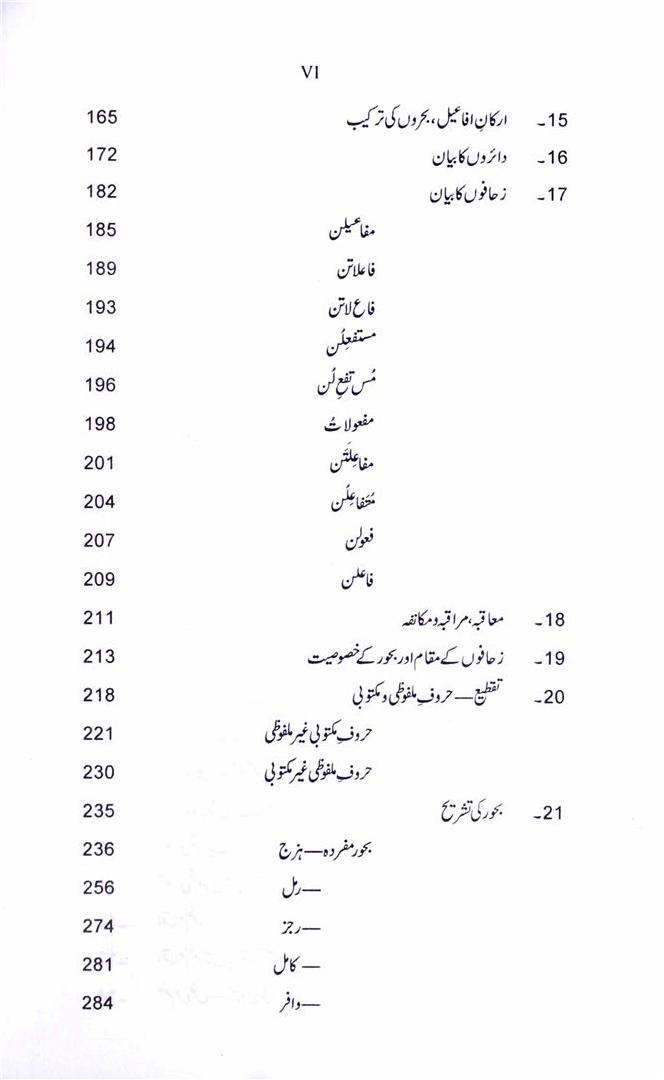 VI
15۔ ارکانِ افاعیل، بحروں کی ترکیب 165
16۔ دائروں کا بیان 172
17۔ زحافوں کا بیان 182
مفاعیلن 185
فاعلاتن 189
فاع لاتن 193
مستفعِلُن 194
مُس تفعِ لُن 196
مفعولاتُ 198
مفاعِلَتَن 201
مُتَفاعِلُن 204
فعولن 207
فاعلن 209
18۔ معاقبہ، مراقبہ و مکانفہ 211
19۔ زحافوں کے مقام اور بحور کے خصوصیت 213
20۔ تقطیع — حروفِ ملفوظی و مکتوبی 218
حروفِ مکتوبی غیر ملفوظی 221
حروفِ ملفوظی غیر مکتوبی 230
21۔ بحور کی تشریح 235
بحور مفردہ — ہزج 236
— رمل 256
— رجز 274
— کامل 281
— وافر 284